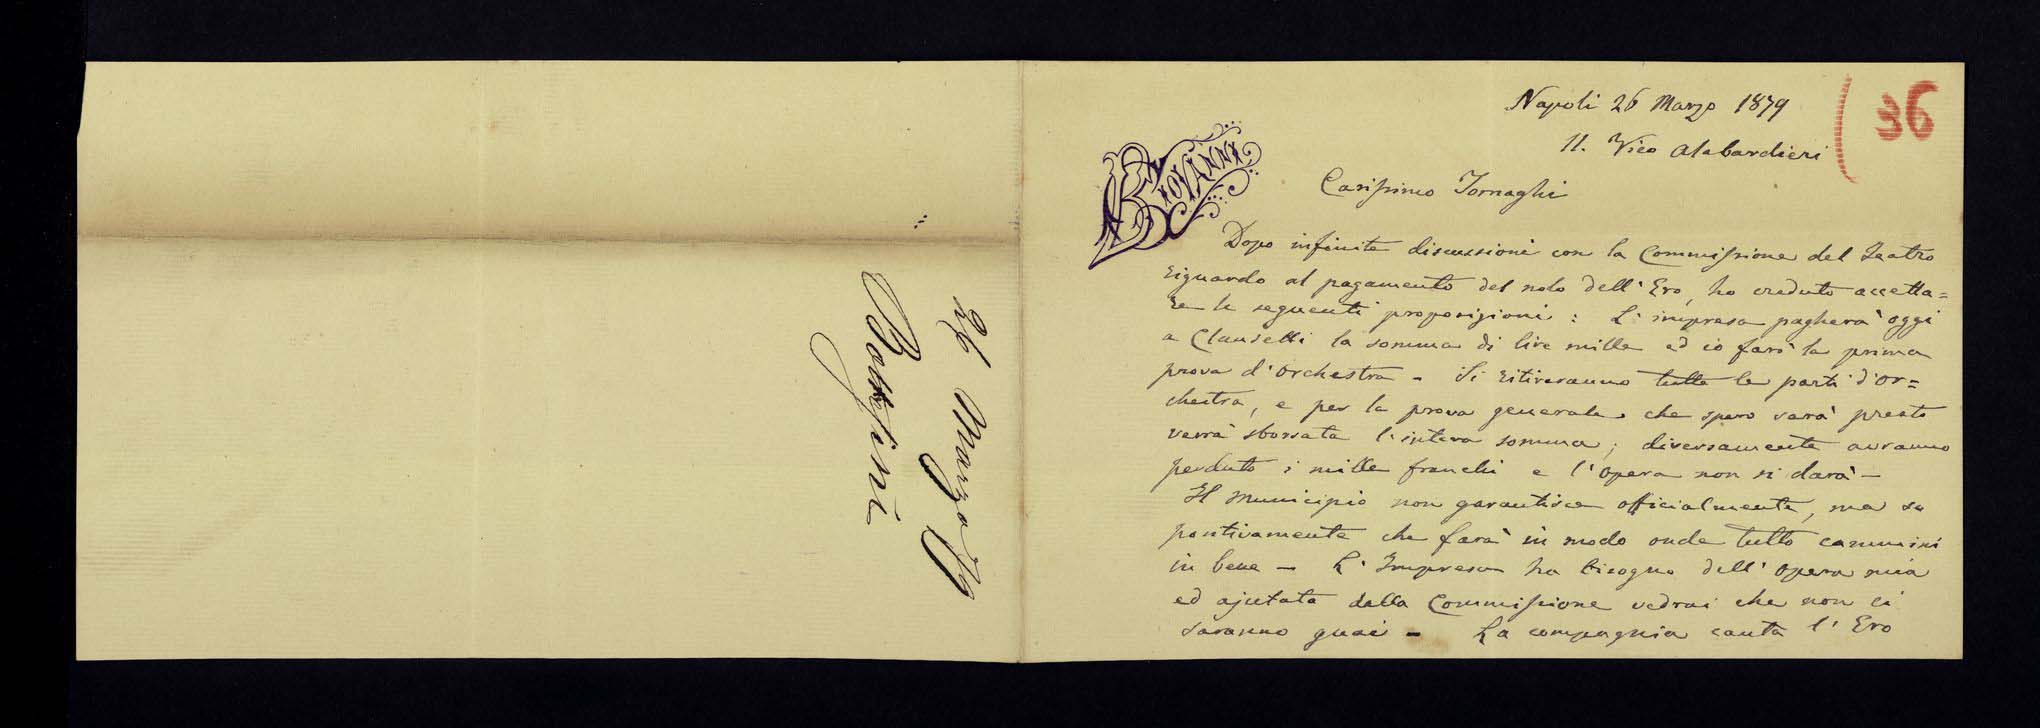 26 Marzo 79
Bottesini
36
Napoli 26 Marzo 1879
11. Vico Alabardieri
GIOVANNI
Carissimo Tornaghi
Dopo infinite discussioni con la Commissione del Teatro
riguardo al pagamento del nolo dell'Ero, ho creduto accetta=
re le seguenti proposizioni: L'impresa pagherà oggi
a Clausetti la somma di lire mille ed io farò la prima
prova d'orchestra - Si ritireranno tutte le parti d'or=
chestra, e per la prova generale che spero sarà presto
verrà sborsata l'intera somma; diversamente avranno
perduto i mille franchi e l'opera non si darà -
Il Municipio non garantisce officialmente, ma so
positivamente che farà in modo onde tutto cammini
in bene - L'Impresa ha bisogno dell'opera mia
ed ajutata dalla Commissione vedrai che non ci
saranno guai - La compagnia canta l'Ero